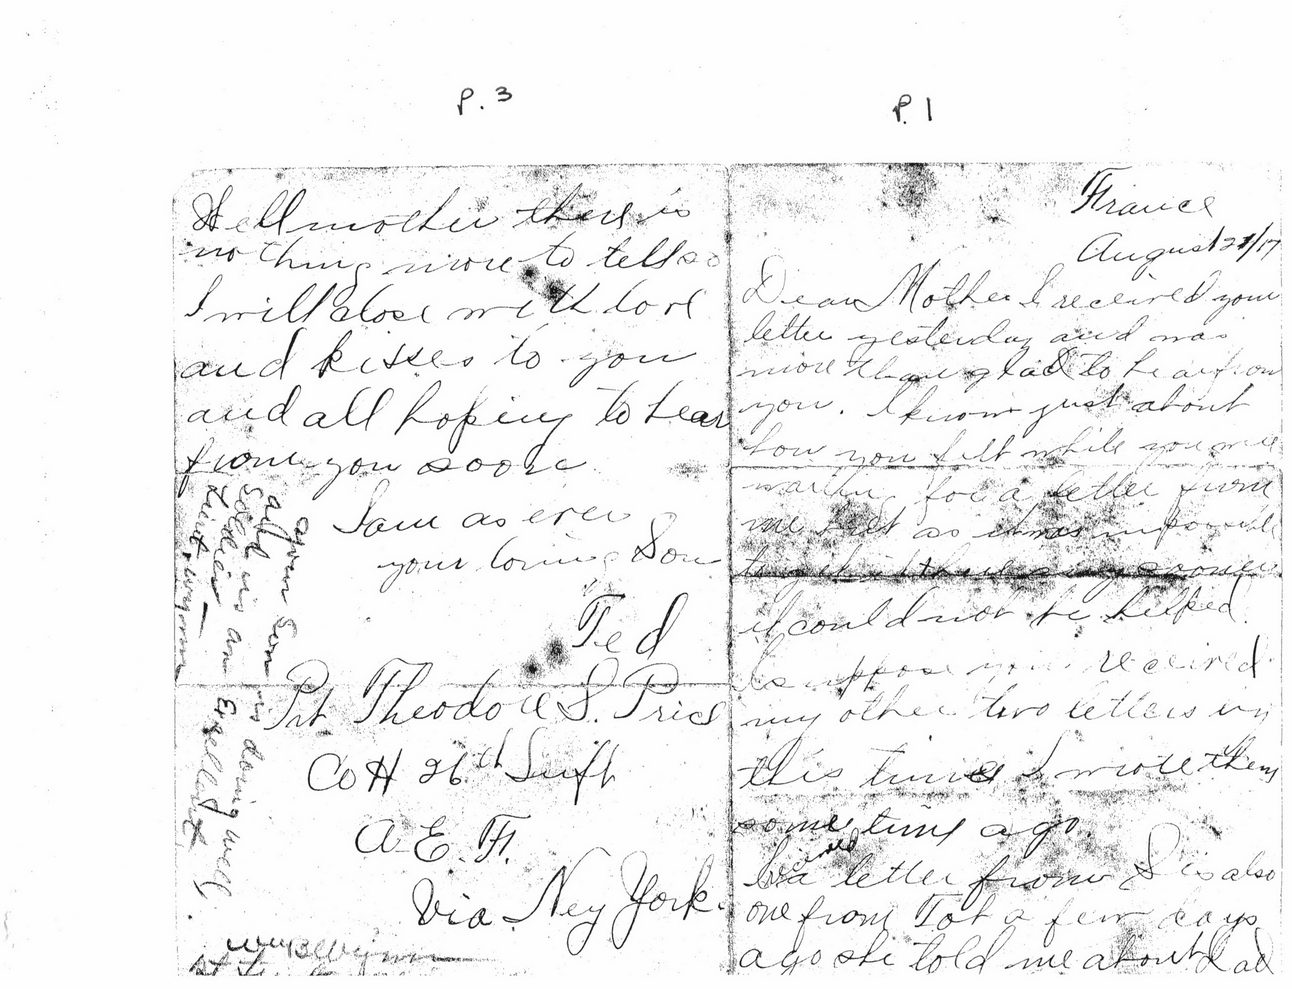 P. 3
Well mother there is
nothing more to tell so
I will close with love
and kisses to you
and all hoping to hear
from you soon
I am as ever
your loving Son
Ted
Pvt Theodore S. Price
Co H 26th Inft
A. E. F.
Via Ney York.
your Son is doing well
and is an Excellent
Soldier —
P. 1
France
August 21/17
Dear Mother I received your
letter yesterday and was
more than glad to hear from
you. I know just about
how you felt while you were
waiting for a letter from
me but as it was impossible
to get it there any sooner
it could not be helped.
I suppose you received
my other two letters by
this time I wrote them
some time ago
received
I a letter from Sis also
one from Tot a few days
ago she told me about Dad